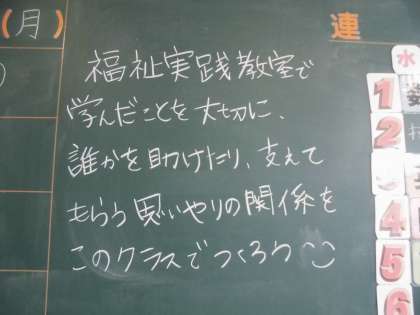 (月)
連
福祉実践教室で
学んだことを大切に、
誰かを助けたり、支えて
もらう思いやりの関係を
このクラスでつくろう
水
1
2
4
5
6